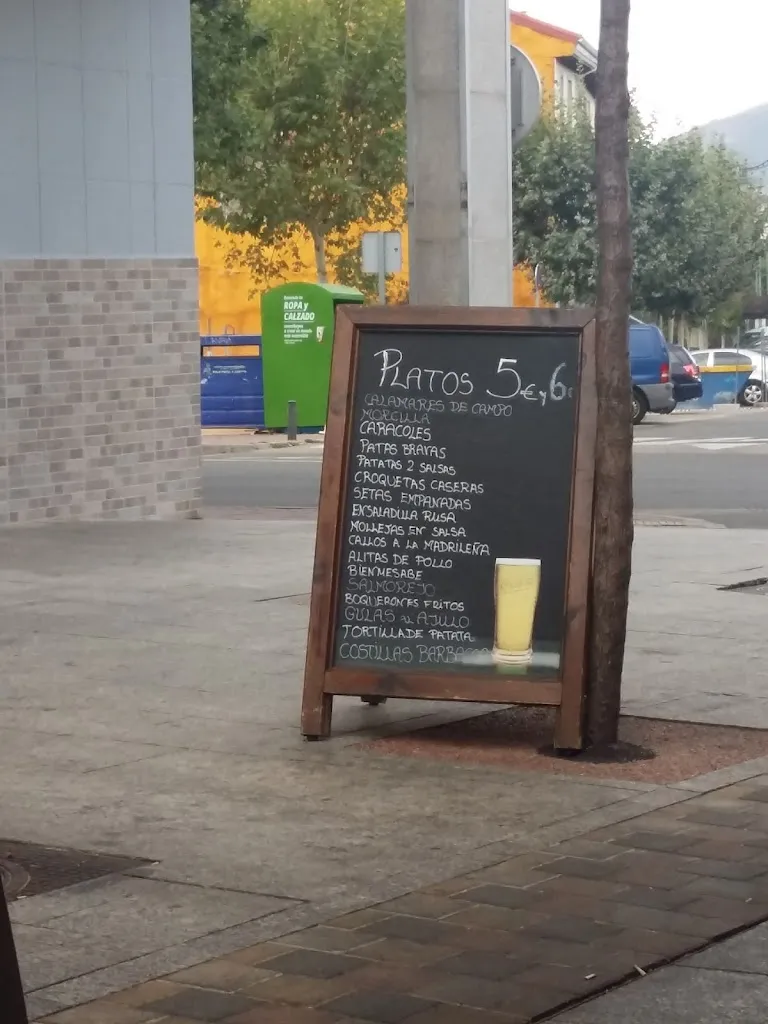 ROPA y
CALZADO
PLATOS 5€ y 6€
CALAMARES DE CAMPO
MORCILLA
CARACOLES
PATAS BRAVAS
PATATAS 2 SALSAS
CROQUETAS CASERAS
SETAS EMPANADAS
ENSALADILLA RUSA
MOLLEJAS EN SALSA
CALLOS A LA MADRILEÑA
ALITAS DE POLLO
BIENMESABE
SALMOREJO
BOQUERONES FRITOS
GULAS AL AJILLO
TORTILLA DE PATATA
COSTILLAS BARBACOA